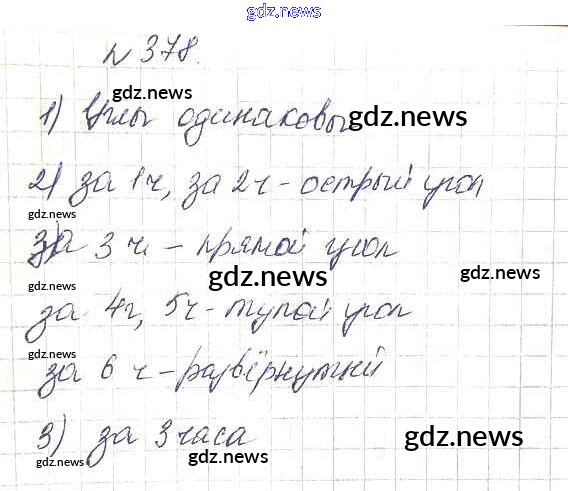 gdz.news
№ 378.
gdz.news
1) Углы одинаковы
gdz.news
2) за 1ч, за 2ч - острый угол
gdz.news
за 3 ч - прямой угол
gdz.news
gdz.news
gdz.news
за 4ч, 5ч - тупой угол
gdz.news
за 6 ч - развёрнутый
3) за 3 часа
gdz.news
gdz.news
gdz.news